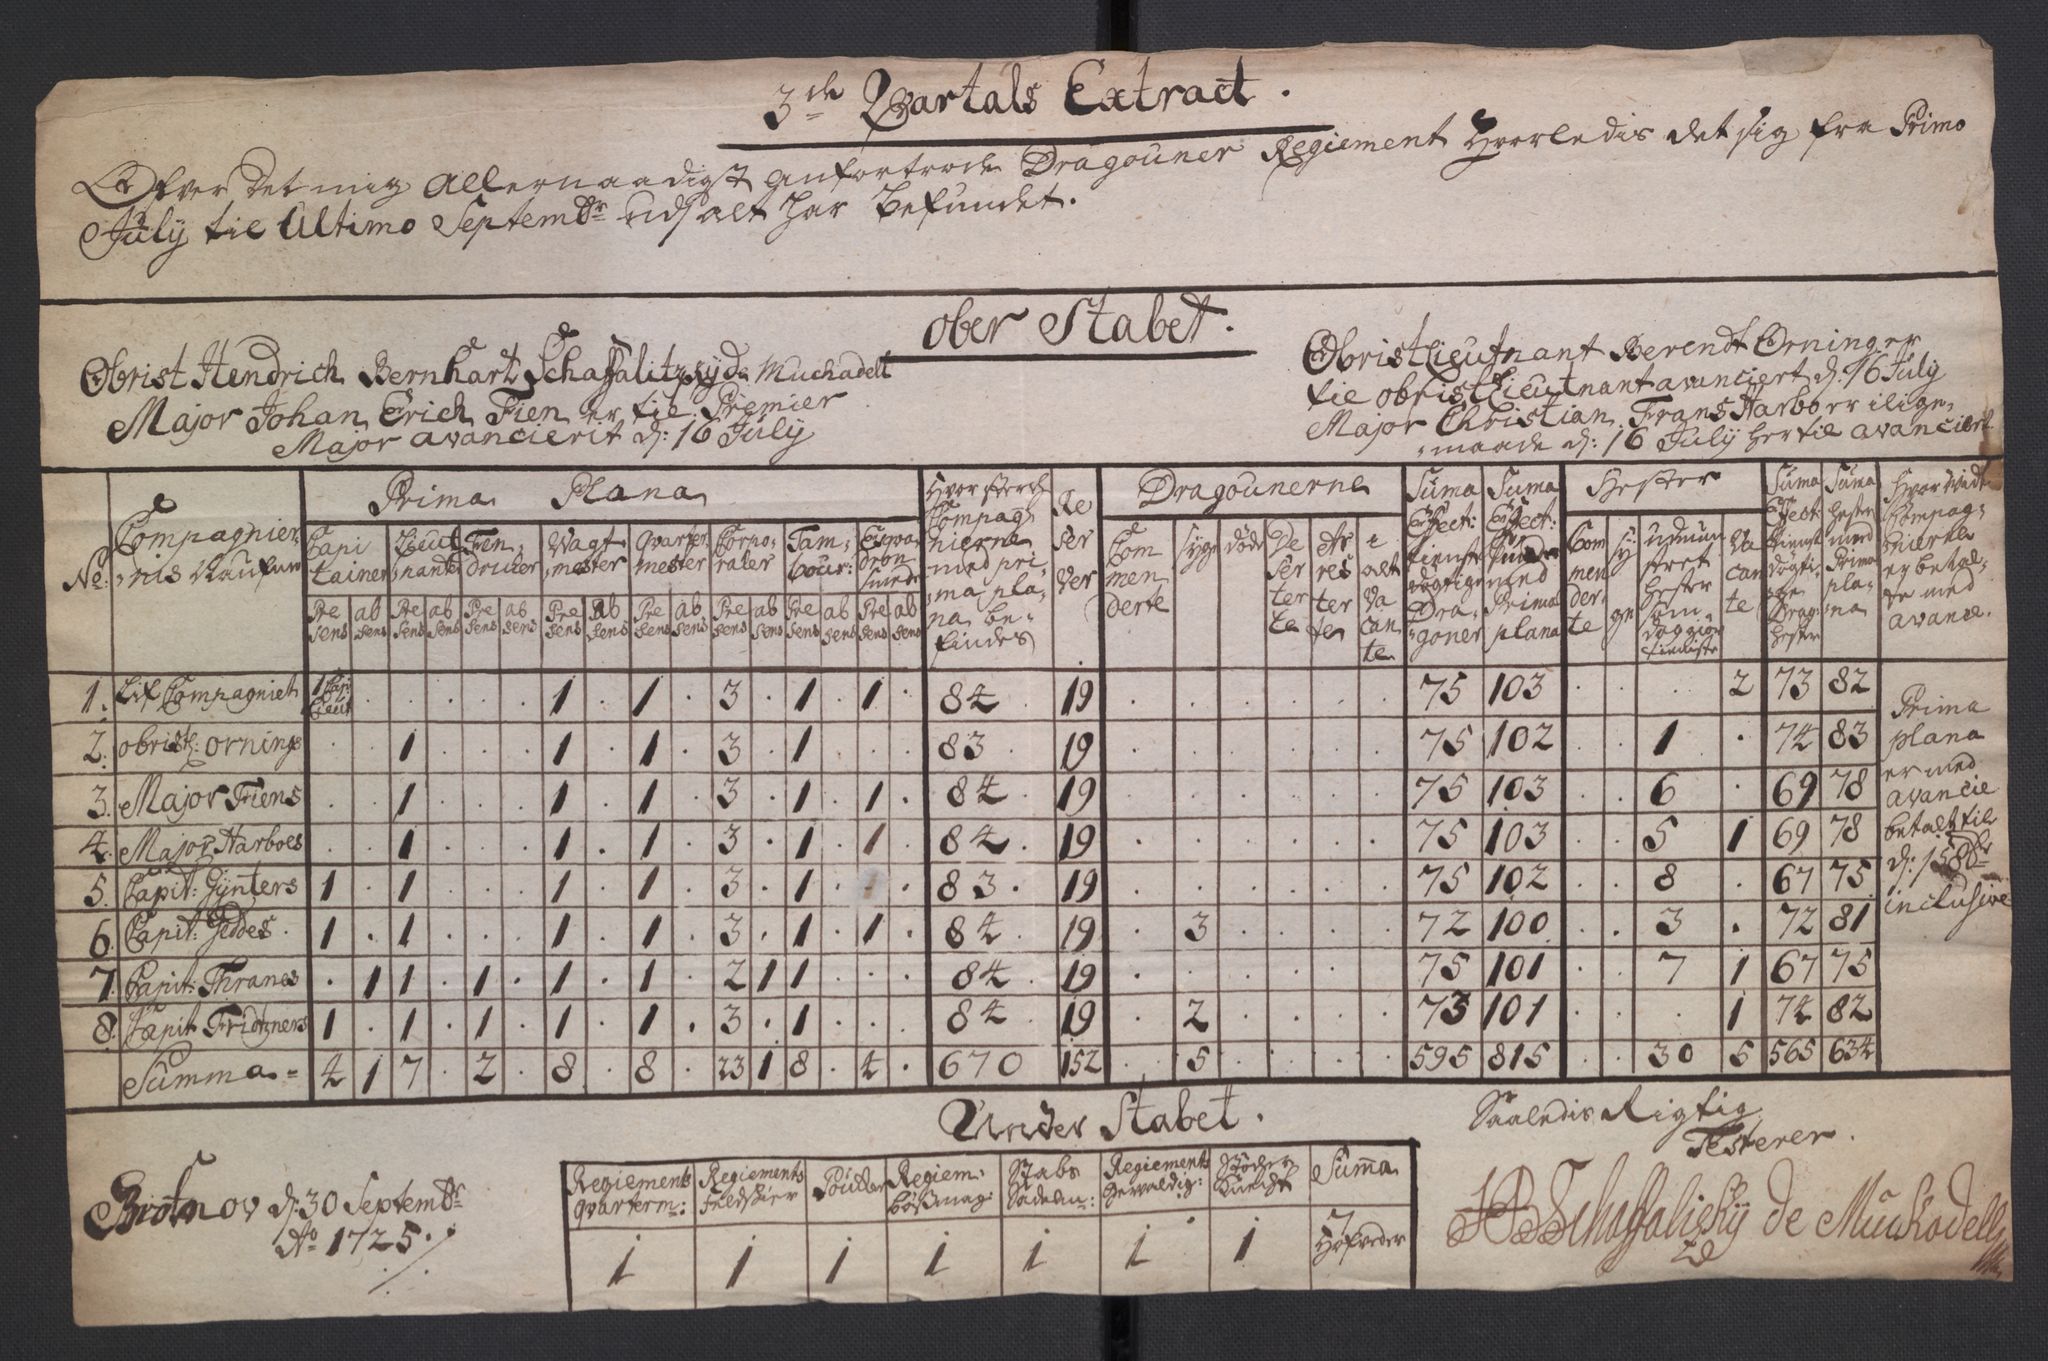 3de Qvartals Extract.
Ofver det mig Allernaadigst anfortrode Dragouner Regiement Hvorledis det sig fra Primo
July til Ultimo Septembr udj alt har befundet.
ober Stabet.
Obrist Hendrich Bernhart Schaffalitzky de Muchadelt
Major Johan Erich Fien er til Premier
Major avancierit d: 16 July
ObristLieutnant Berendt Orning er
til obristLieutnant avanciert d: 16 July
Major Christian Frans Harbo er ilige
maade d: 16 July hertil avanciert
No: Compagniernis Naufne Prima Plana Compagnierne med prima plana befindes Reserver Dragounerne Suma Effect: tienstdögtige Dragoner Suma Effect: med Prima plana Hester Suma Effect: tienstdögtige Drag: hester Suma hester med Prima plana Hvor vidt Compagnierne er betalte med avance.
Capitainer Lieutnanter Fendricker Vagtmester Qvartermester Corporaler Tambour: Commenderte syge döde Deserterte Arresterte i alt Vacante Commenderte syge udmunstret hester Vacante
Presens absens Presens absens Presens absens Presens Absens Presens absens Presens absens Presens absens Presens absens
1. Lif Compagniet 1 Cap: Lieut 1 1 3 1 1 84 19 75 103 2 73 82
2. obristl: ornings 1 1 1 3 1 83 19 75 102 1 74 83
3. Major Fiens 1 1 1 3 1 1 84 19 75 103 6 69 78
4. Major Harboes 1 1 1 3 1 1 84 19 75 103 5 1 69 78
5. Capit: Gÿnters 1 1 1 1 3 1 1 83 19 75 102 8 67 75
6. Capit: Geddes 1 1 1 1 3 1 1 84 19 3 72 100 3 72 81
7. Capit: Thranes 1 1 1 1 1 2 1 1 84 19 75 101 7 1 67 75
8. Capit Fridzners 1 1 1 1 1 3 1 84 19 2 73 101 1 74 82
Summa 4 1 7 2 8 8 23 1 8 4 670 152 5 595 815 30 5 565 634
Prima
plana
er med
avancie
betalt til
d: 15 8br
inclusive
Under Stabet.
Saaledis Rigtig
Testerer.
Regiements Qvarterm: Regiements Feldskier Pouker Regiem: bösmag: Stabs Sadelm: Regiements Gevaldig: Stöcker Knecht Suma
1 1 1 1 1 1 1 7 Hofveder
d: 30 Septembr
Ao 1725
HBSchaffalisky de Muckadell